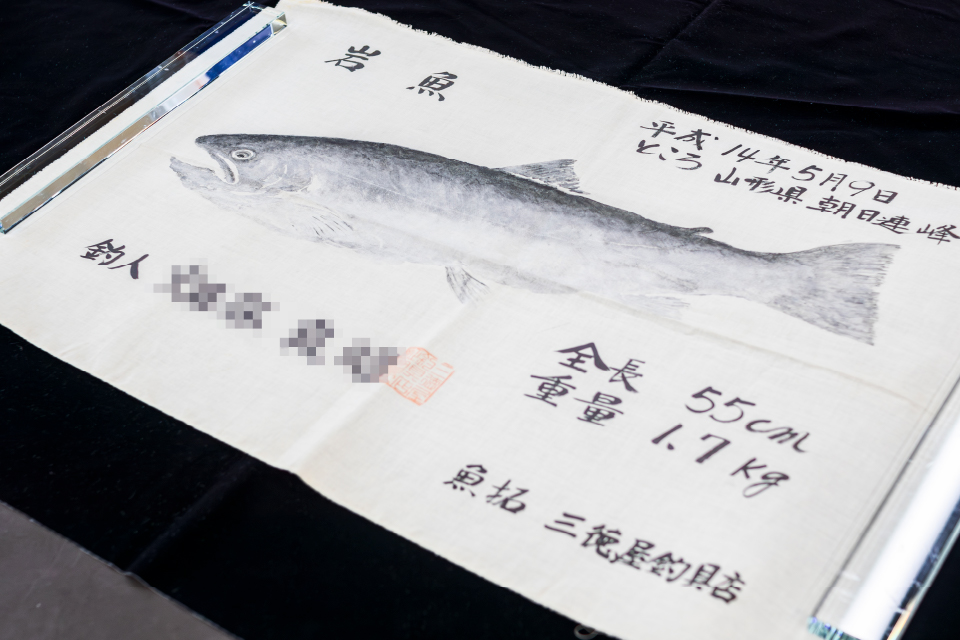 岩魚
平成14年5月9日
ところ 山形県朝日連峰
釣人
全長 55cm
重量 1.7kg
魚拓 三徳屋釣具店